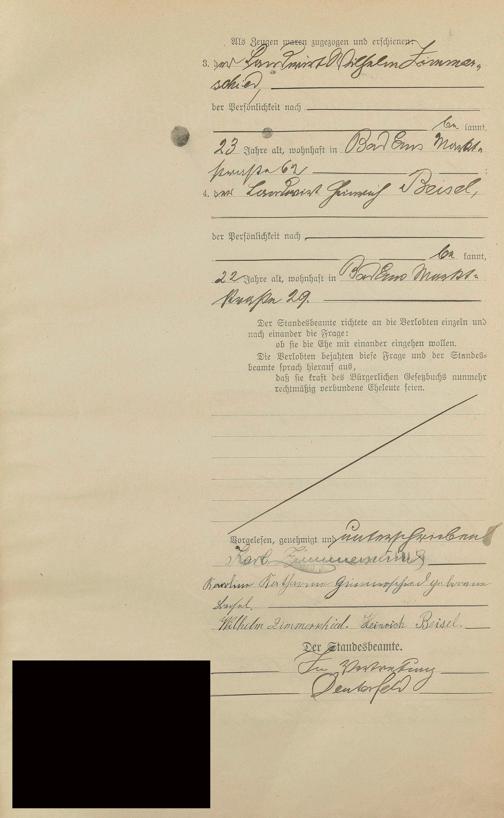 Als Zeugen waren zugezogen und erschienen:
3. der Landwirt Wilhelm Zimmer-
schied,
der Persönlichkeit nach
be kannt,
23 Jahre alt, wohnhaft in Bad Ems Markt-
straße 62
4. der Landwirt Heinrich Beisel,
der Persönlichkeit nach
be kannt,
22 Jahre alt, wohnhaft in Bad Ems Markt-
straße 29.
Der Standesbeamte richtete an die Verlobten einzeln und
nach einander die Frage:
ob sie die Ehe mit einander eingehen wollen.
Die Verlobten bejahten diese Frage und der Standes-
beamte sprach hierauf aus,
daß sie kraft des Bürgerlichen Gesetzbuchs nunmehr
rechtmäßig verbundene Eheleute seien.
Vorgelesen, genehmigt und unterschrieben
Karl Zimmerschied
Katharine Zimmerschied geborene
Beisel.
Wilhelm Zimmerschied. Heinrich Beisel.
Der Standesbeamte.
In Vertretung